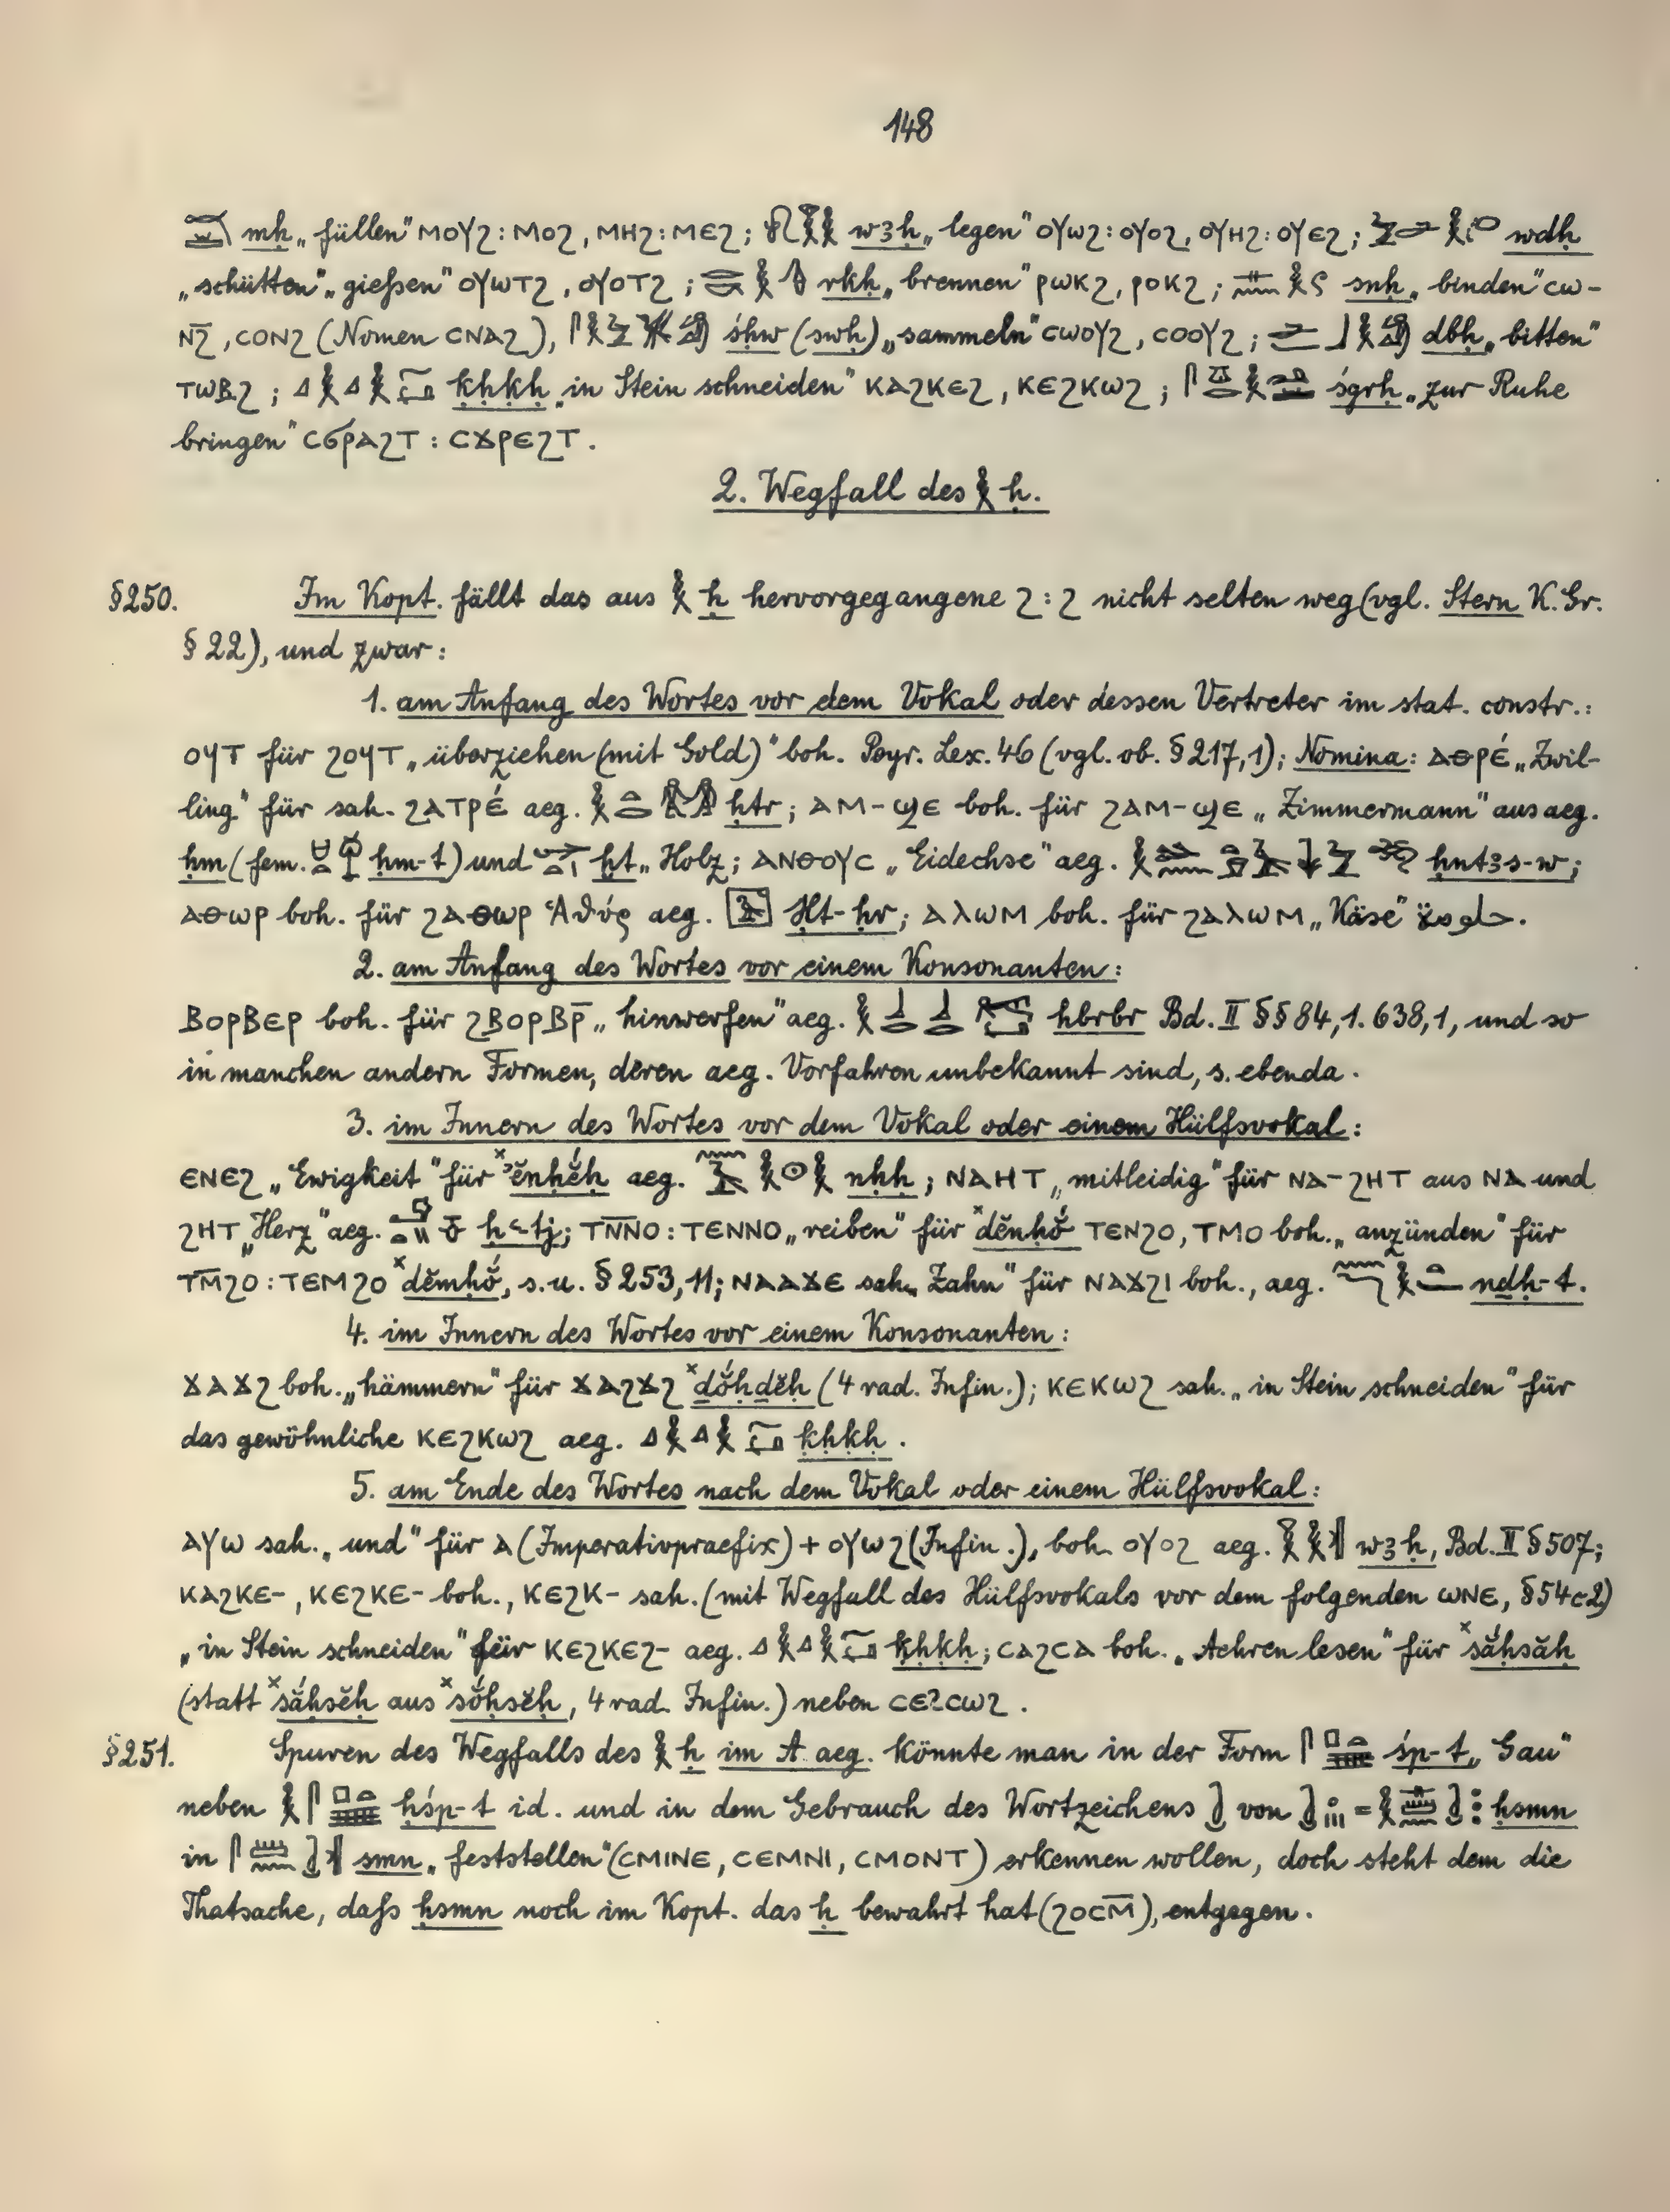 148
mḥ „füllen" ⲙⲟⲩϩ : ⲙⲟϩ, ⲙⲏϩ : ⲙⲉϩ; wꜣḥ „legen" ⲟⲩⲱϩ : ⲟⲩⲟϩ, ⲟⲩⲏϩ : ⲟⲩⲉϩ; wdḥ
„schütten" „gießen" ⲟⲩⲱⲧϩ, ⲟⲩⲟⲧϩ; rkḥ „brennen" ⲣⲱⲕϩ, ⲣⲟⲕϩ; snḥ „binden" ⲥⲱ-
ⲛ̄ϩ, ⲥⲟⲛϩ (Nomen ⲥⲛⲁϩ), śḥw (swḥ) „sammeln" ⲥⲱⲟⲩϩ, ⲥⲟⲟⲩϩ; dbḥ „bitten"
ⲧⲱⲃϩ; ḳḥḳḥ „in Stein schneiden" ⲕⲁϩⲕⲉϩ, ⲕⲉϩⲕⲱϩ; śgrḥ „zur Ruhe
bringen" ⲥϭⲣⲁϩⲧ : ⲥϫⲣⲉϩⲧ.
2. Wegfall des 𓎛 ḥ.
§250. Im Kopt. fällt das aus 𓎛 ḥ hervorgegangene ϩ : ϩ nicht selten weg (vgl. Stern K. Gr.
§ 22), und zwar:
1. am Anfang des Wortes vor dem Vokal oder dessen Vertreter im stat. constr.:
ⲟϥⲧ für ϩⲟϥⲧ „überziehen (mit Gold)" boh. Peyr. Lex. 46 (vgl. ob. § 217,1); Nomina: ⲁⲑⲣⲉ́ „Zwil-
ling" für sah. ϩⲁⲧⲣⲉ́ aeg. ḥtr; ⲁⲙ-ϣⲉ boh. für ϩⲁⲙ-ϣⲉ „Zimmermann" aus aeg.
ḥm (fem. ḥm-t) und ḫt „Holz; ⲁⲛⲑⲟⲩⲥ „Eidechse" aeg. ḥntꜣs-w;
ⲁⲑⲱⲣ boh. für ϩⲁⲑⲱⲣ Ἀθύρ aeg. Ḥt-ḥr; ⲁⲗⲱⲙ boh. für ϩⲁⲗⲱⲙ „Käse" حلومة.
2. am Anfang des Wortes vor einem Konsonanten:
ⲃⲟⲣⲃⲉⲣ boh. für ϩⲃⲟⲣⲃⲣ̄ „hinwerfen" aeg. ḥbrbr Bd. II §§ 84,1. 638,1, und so
in manchen andern Formen, deren aeg. Vorfahren unbekannt sind, s. ebenda.
3. im Innern des Wortes vor dem Vokal oder einem Hülfsvokal:
ⲉⲛⲉϩ „Ewigkeit" für ˣʾĕnḥĕ́ḥ aeg. nḥḥ; ⲛⲁⲏⲧ „mitleidig" für ⲛⲁ-ϩⲏⲧ aus ⲛⲁ und
ϩⲏⲧ „Herz" aeg. ḥꜥtj; ⲧⲛ̄ⲛⲟ : ⲧⲉⲛⲛⲟ „reiben" für ˣdĕnḥŏ́ ⲧⲉⲛϩⲟ, ⲧⲙⲟ boh. „anzünden" für
ⲧⲙ̄ϩⲟ : ⲧⲉⲙϩⲟ ˣdĕmḥŏ́, s. u. § 253,11; ⲛⲁⲁϫⲉ sah. „Zahn" für ⲛⲁϫϩⲓ boh., aeg. nḏḥ-t.
4. im Innern des Wortes vor einem Konsonanten:
ϫⲁϫϩ boh. „hämmern" für ϫⲁϩϫϩ ˣḏŏ́ḥḏĕḥ (4 rad. Infin.); ⲕⲉⲕⲱϩ sah. „in Stein schneiden" für
das gewöhnliche ⲕⲉϩⲕⲱϩ aeg. ḳḥḳḥ.
5. am Ende des Wortes nach dem Vokal oder einem Hülfsvokal:
ⲁⲩⲱ sah. „und" für ⲁ (Imperativpraefix) + ⲟⲩⲱϩ (Infin.), boh. ⲟⲩⲟϩ aeg. wꜣḥ, Bd. II § 507;
ⲕⲁϩⲕⲉ-, ⲕⲉϩⲕⲉ- boh., ⲕⲉϩⲕ- sah. (mit Wegfall des Hülfsvokals vor dem folgenden ⲱⲛⲉ, § 54c2)
„in Stein schneiden" für ⲕⲉϩⲕⲉϩ- aeg. ḳḥḳḥ; ⲥⲁϩⲥⲁ boh. „Aehren lesen" für ˣsắḥsăḥ
(statt ˣsắḥsĕḥ aus ˣsŏ́ḥsĕḥ, 4 rad. Infin.) neben ⲥⲉϩⲥⲱϩ.
§251. Spuren des Wegfalls des 𓎛 ḥ im A. aeg. könnte man in der Form śp-t „Gau"
neben ḥśp-t id. und in dem Gebrauch des Wortzeichens von = ḥsmn
in smn „feststellen" (ⲥⲙⲓⲛⲉ, ⲥⲉⲙⲛⲓ, ⲥⲙⲟⲛⲧ) erkennen wollen, doch steht dem die
Thatsache, daß ḥsmn noch im Kopt. das ḥ bewahrt hat (ϩⲟⲥⲙ̄), entgegen.